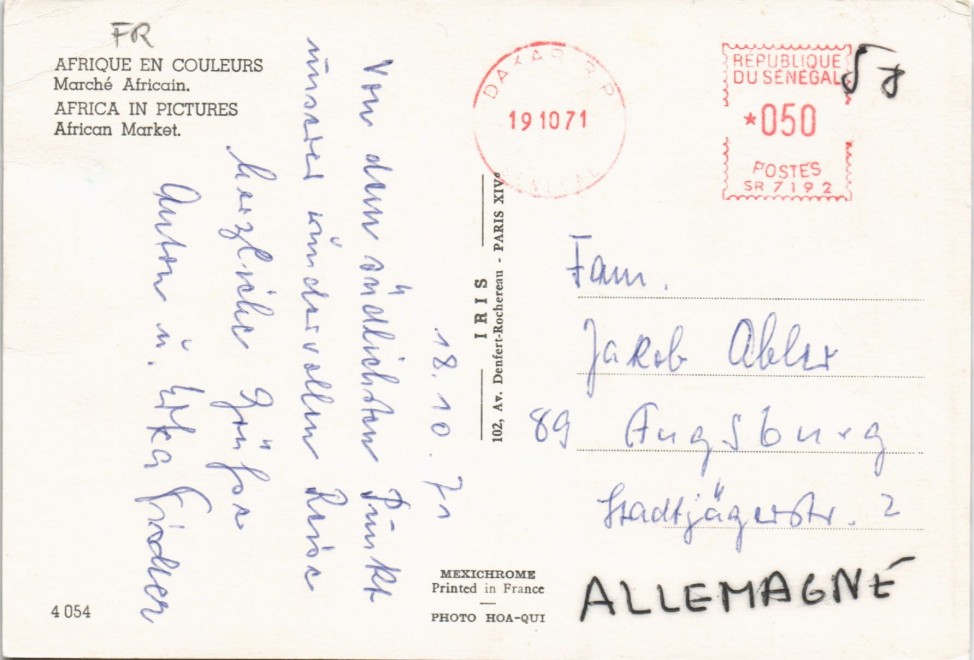 FR
AFRIQUE EN COULEURS
Marché Africain.
AFRICA IN PICTURES
African Market.
18.10.71
Von dem südlichsten Punkt
unserer wundervollen Reise
herzliche Grüße
Anton u. Erika
DAKAR R.P
19 10 71
SENEGAL
RÉPUBLIQUE
DU SÉNÉGAL
*050
POSTES
SR 7192
IRIS
102, Av. Denfert-Rochereau - PARIS XIVe
Fam.
Jakob Abler
89 Augsburg
Stadtjägerstr. 2
ALLEMAGNE
MEXICHROME
Printed in France
PHOTO HOA-QUI
4 054